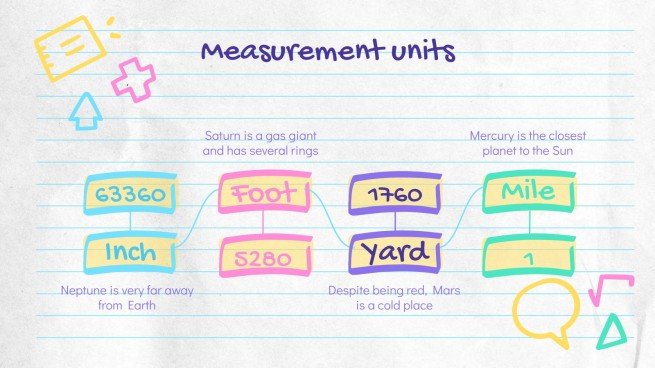 Measurement units
Saturn is a gas giant
and has several rings
Mercury is the closest
planet to the Sun
63360
Foot
1760
Mile
Inch
5280
Yard
1
Neptune is very far away
from Earth
Despite being red, Mars
is a cold place